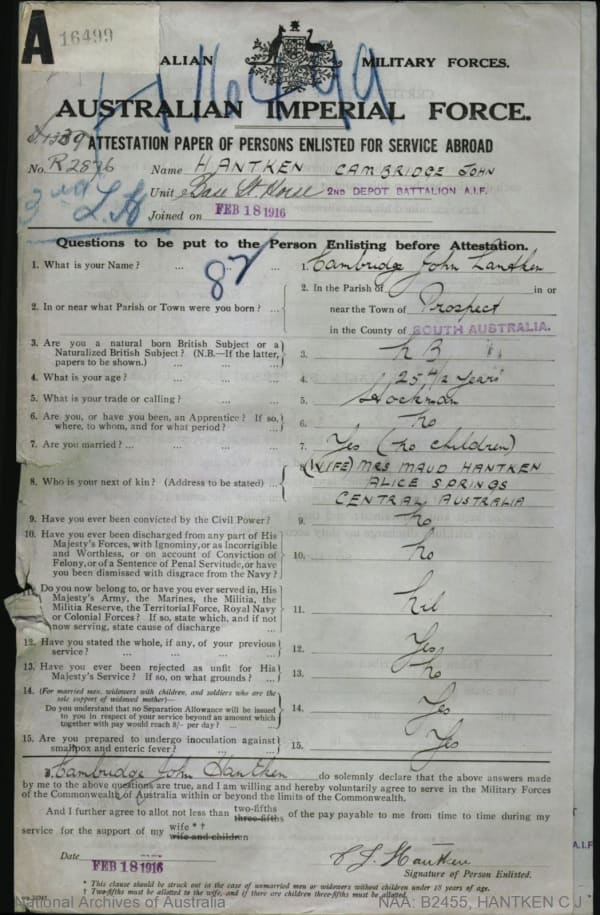 A 16499
ALIAN MILITARY FORCES.
16499
AUSTRALIAN IMPERIAL FORCE.
ATTESTATION PAPER OF PERSONS ENLISTED FOR SERVICE ABROAD
No. R2876 Name HANTKEN CAMBRIDGE JOHN
3rd L.H Unit Base Lt Horse 2ND DEPOT BATTALION A.I.F.
Joined on FEB 18 1916
Questions to be put to the Person Enlisting before Attestation.
87
1. What is your Name? ... ... 1. Cambridge John Hantken
2. In or near what Parish or Town were you born? ... 2. In the Parish of in or
near the Town of Prospect
in the County of SOUTH AUSTRALIA.
3. Are you a natural born British Subject or a
Naturalized British Subject? (N.B.—If the latter,
papers to be shown.) ... ... 3. N B
4. What is your age? ... ... ... 4. 25 4/12 Years
5. What is your trade or calling? ... ... 5. Stockman
6. Are you, or have you been, an Apprentice? If so,
where, to whom, and for what period? ... 6. No
7. Are you married? ... ... ... 7. Yes (No children)
8. Who is your next of kin? (Address to be stated) ... 8. (WIFE) MRS MAUD HANTKEN
ALICE SPRINGS
CENTRAL AUSTRALIA
9. Have you ever been convicted by the Civil Power? 9. No
10. Have you ever been discharged from any part of His
Majesty's Forces, with Ignominy, or as Incorrigible
and Worthless, or on account of Conviction of
Felony, or of a Sentence of Penal Servitude, or have
you been dismissed with disgrace from the Navy? 10. No
Do you now belong to, or have you ever served in, His
Majesty's Army, the Marines, the Militia, the
Militia Reserve, the Territorial Force, Royal Navy
or Colonial Forces? If so, state which, and if not
now serving, state cause of discharge ... 11. Nil
12. Have you stated the whole, if any, of your previous
service? ... ... ... ... 12. Yes
13. Have you ever been rejected as unfit for His
Majesty's Service? If so, on what grounds? ... 13. No
14. (For married men, widowers with children, and soldiers who are the
sole support of widowed mother)—
Do you understand that no Separation Allowance will be issued
to you in respect of your service beyond an amount which
together with pay would reach 8/- per day? ... ... 14. Yes
15. Are you prepared to undergo inoculation against
smallpox and enteric fever? ... ... 15. Yes
Cambridge John Hantken do solemnly declare that the above answers made
by me to the above questions are true, and I am willing and hereby voluntarily agree to serve in the Military Forces
of the Commonwealth of Australia within or beyond the limits of the Commonwealth.
And I further agree to allot not less than two-fifths three-fifths of the pay payable to me from time to time during my
service for the support of my wife *† wife and children
Date FEB 18 1916 C J Hantken
Signature of Person Enlisted.
* This clause should be struck out in the case of unmarried men or widowers without children under 18 years of age.
† Two-fifths must be allotted to the wife, and if there are children three-fifths must be allotted.
A.I.F
National Archives of Australia NAA: B2455, HANTKEN C J